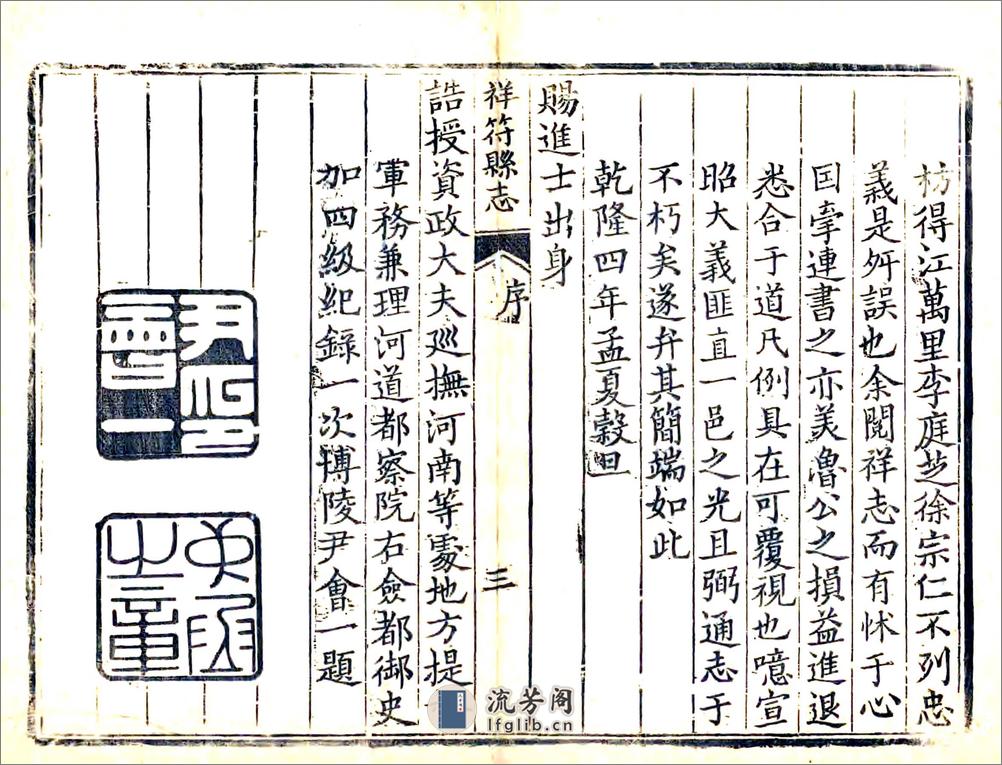 枋得江萬里李庭芝徐宗仁不列忠
義是舛誤也余閱祥志而有怵于心
囯牽連書之亦美魯公之損益進退
悉合于道凡例具在可覆視也噫宣
昭大義匪直一邑之光且弼通志于
不朽矣遂弁其簡端如此
乾隆四年孟夏穀旦
賜進士出身
祥符縣志
序
三
誥授資政大夫巡撫河南等處地方提
軍務兼理河道都察院右僉都御史
加四級紀錄一次博陵尹會一題
尹印會一
之章
流芳阁
lfglib.cn